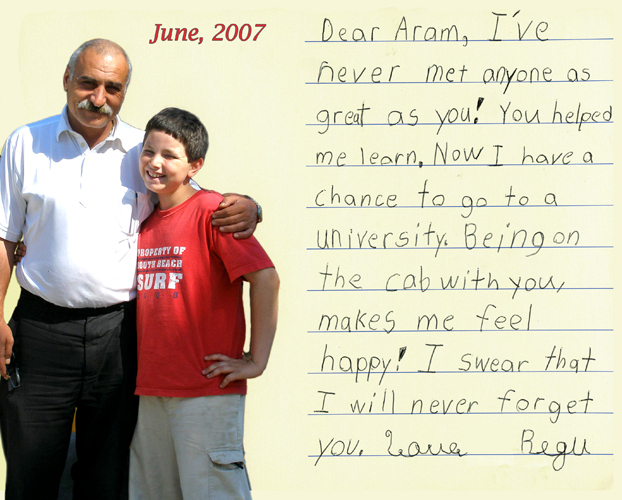 June, 2007
Dear Aram, I've
never met anyone as
great as you! You helped
me learn. Now I have a
chance to go to a
university. Being on
the cab with you,
makes me feel
happy! I swear that
I will never forget
you.
PROPERTY OF
SOUTH BEACH
SURF